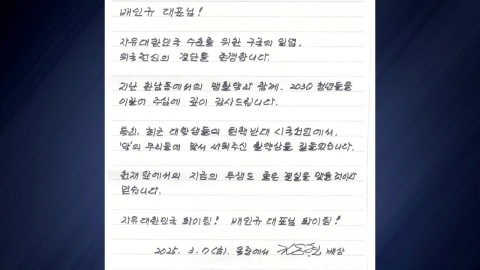 배인규 대표님!
자유대한민국 수호를 위한 구국의 일념,
위국헌신의 결단을 존경합니다.
지난 한남동에서의 맹활약과 함께, 2030 청년들을
이끌어 주심에 깊이 감사드립니다.
특히, 최근 대학생들의 탄핵반대 시국선언에서,
'악의 무리들'에 맞서 싸워주신 활약상을
헌재 앞에서의 지금의 투쟁도 좋은 결실을 맺을것이라
믿습니다.
자유대한민국 화이팅! 배인규 대표님 화이팅!
2025. 3. 7(금). 옥중에서 배상